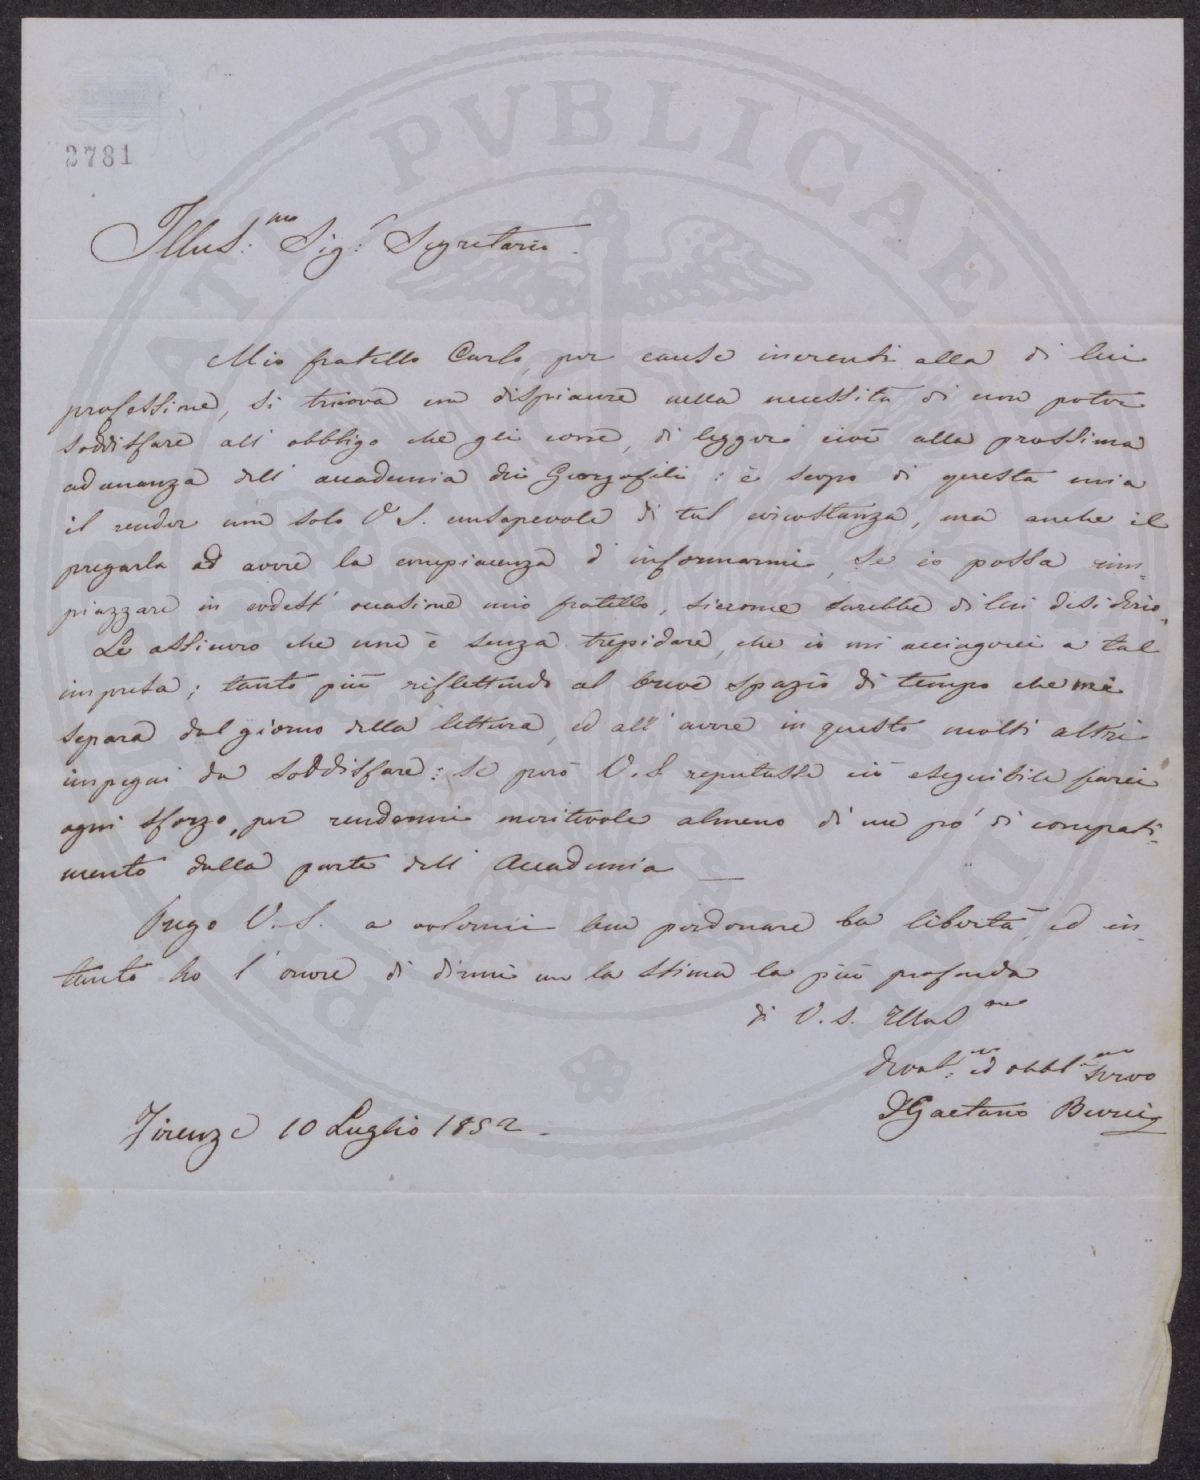 2781
Illus:mo Sig:r Segretario.
Mio fratello Carlo, per cause inerenti alla di lui
professione, si truova con dispiacere nella necessità di non poter
soddisfare all' obbligo che gli corre, di leggere cioè alla prossima
adunanza dell' accademia dei Georgofili: è scopo di questa mia
il render non solo V. S. consapevole di tal circostanza, ma anche il
pregarla ad avere la compiacenza d' informarmi, se io possa rim-
piazzare in codest' occasione mio fratello, siccome sarebbe di lui desiderio.
Le assicuro che non è senza trepidare, che io mi accingerei a tal
impresa; tanto più riflettendo al breve spazio di tempo che mi
separa dal giorno della lettura, ed all' avere in questo molti altri
impegni da soddisfare: se però V. S. reputasse ciò eseguibile farei
ogni sforzo, per rendermi meritevole almeno di un pò di compati-
mento dalla parte dell' Accademia
Prego V. S. a volermi ben perdonare la libertà, ed in-
tanto ho l' onore di dirmi con la stima la più profonda
di V. S. Illus mo
Devot:mo ed obbl:mo Servo
Gaetano Burci
Firenze 10 Luglio 1852.
PVBLICAE